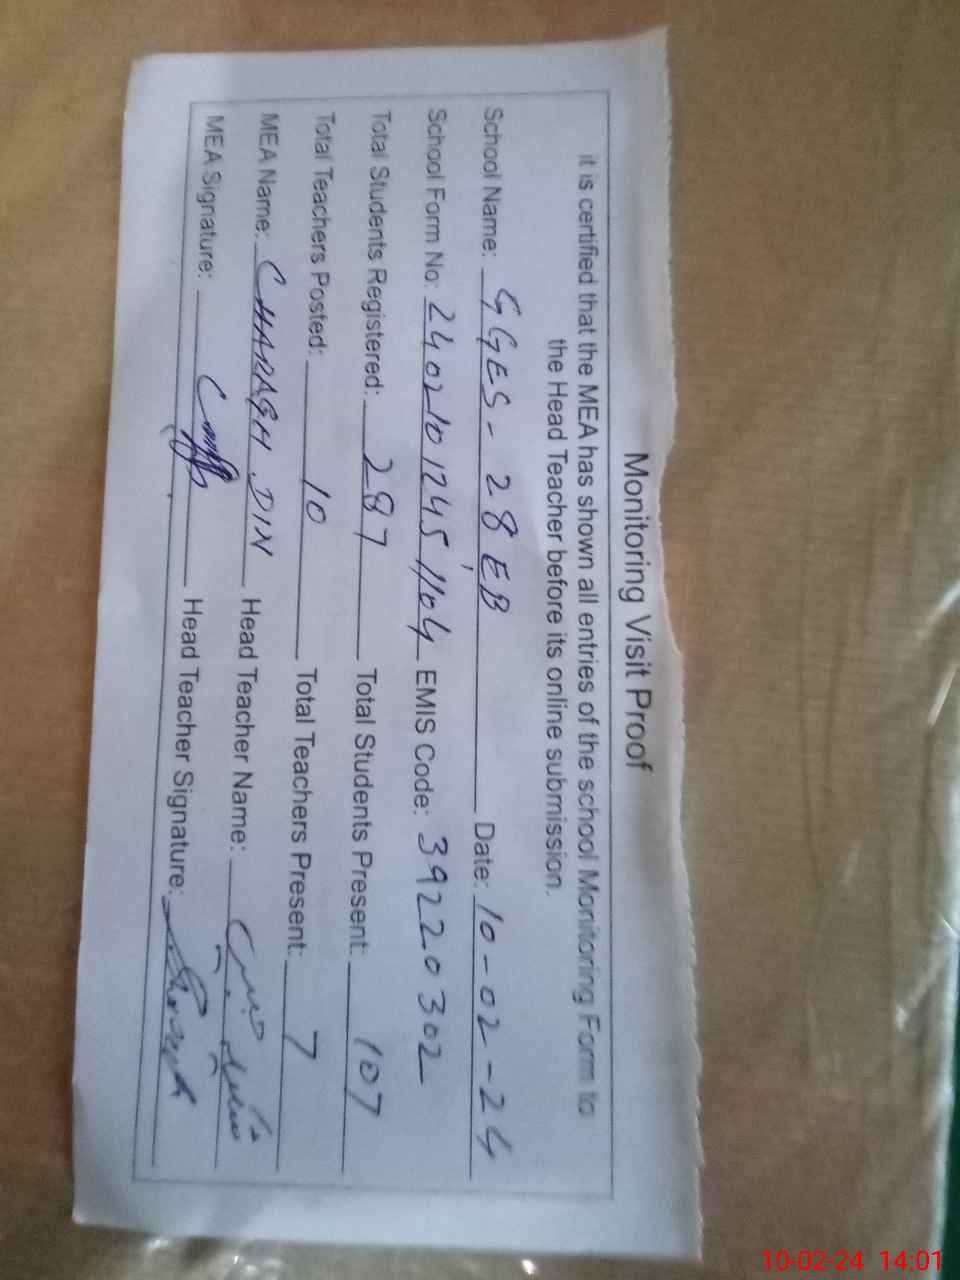 Monitoring Visit Proof
it is certified that the MEA has shown all entries of the school Monitoring Form to
the Head Teacher before its online submission.
School Name: GGES - 28 EB Date: 10-02-24
School Form No: 24021012451104 EMIS Code: 39220302
Total Students Registered: 287 Total Students Present: 107
Total Teachers Posted: 10 Total Teachers Present: 7
MEA Name: CHARAGH DIN Head Teacher Name:
MEA Signature: Head Teacher Signature:
10-02-24 14:01